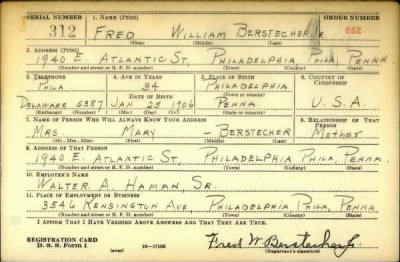 SERIAL NUMBER 1. NAME (Print) ORDER NUMBER
312 FRED WILLIAM BERSTECHER JR 652
(First) (Middle) (Last)
2. ADDRESS (Print)
1940 E. ATLANTIC ST, PHILADELPHIA PHILA, PENNA
(Number and street or R. F. D. number) (Town) (County) (State)
3. TELEPHONE 4. AGE IN YEARS 5. PLACE OF BIRTH 6. COUNTRY OF CITIZENSHIP
PHILA 34 PHILADELPHIA
DATE OF BIRTH (Town or county)
DELAWARE 5387 JAN 25 1906 PENNA U.S.A.
(Exchange) (Number) (Mo.) (Day) (Yr.) (State or country)
7. NAME OF PERSON WHO WILL ALWAYS KNOW YOUR ADDRESS 8. RELATIONSHIP OF THAT PERSON
MRS. MARY — BERSTECHER MOTHER
(Mr., Mrs., Miss) (First) (Middle) (Last)
9. ADDRESS OF THAT PERSON
1940 E. ATLANTIC ST, PHILADELPHIA PHILA, PENNA.
(Number and street or R. F. D. number) (Town) (County) (State)
10. EMPLOYER'S NAME
WALTER A. HAMAN, SR.
11. PLACE OF EMPLOYMENT OR BUSINESS
3546 KENSINGTON AVE PHILADELPHIA PHILA, PENNA
(Number and street or R. F. D. number) (Town) (County) (State)
I AFFIRM THAT I HAVE VERIFIED ABOVE ANSWERS AND THAT THEY ARE TRUE.
REGISTRATION CARD
D. S. S. Form 1 (over) 16—17105 Fred W. Berstecher Jr.
(Registrant's signature)